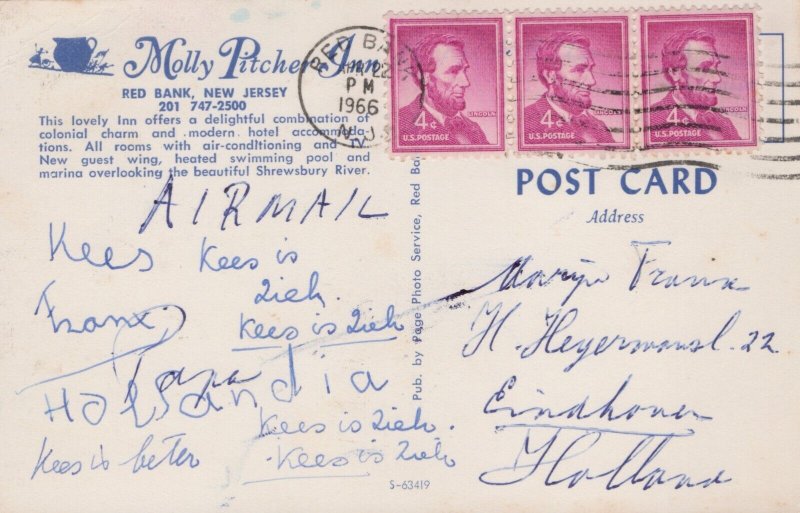 Molly Pitcher Inn
RED BANK, NEW JERSEY
201 747-2500
This lovely Inn offers a delightful combination of
colonial charm and modern hotel accommoda-
tions. All rooms with air-conditioning and TV.
New guest wing, heated swimming pool and
marina overlooking the beautiful Shrewsbury River.
RED BANK
22
PM
1966
N.J.
4¢
LINCOLN
U.S. POSTAGE
4¢
LINCOLN
U.S. POSTAGE
4¢
LINCOLN
U.S. POSTAGE
POST CARD
Address
Pub. by Page Photo Service, Red Ban
AIRMAIL
Kees Kees is
ziek.
Franx Kees is ziek
Papa
Hollandia
Kees is ziek.
Kees is beter Kees is ziek
Franx
H. Heyermansl. 22
Eindhoven
Holland
S-63419